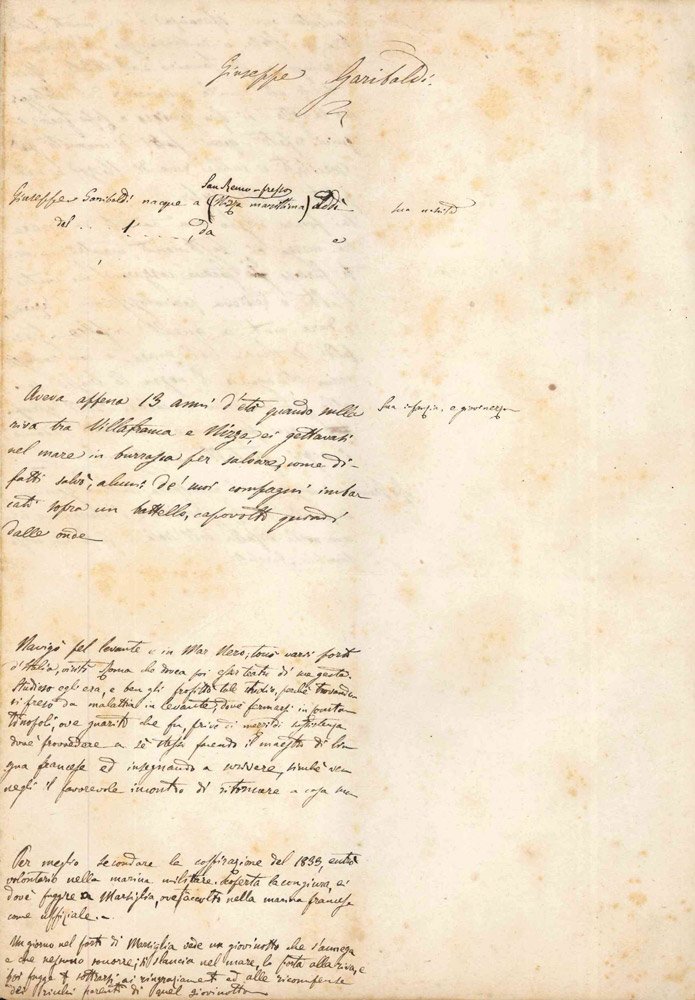 Giuseppe Garibaldi.
San Remo
Giuseppe Garibaldi nacque a (Nizza marittima) addì
sua nascita
del . . . 1 . . . . , da
e
Aveva appena 13 anni d'età quando nella
Sua infanzia, e giovinezza
riva tra Villafranca e Nizza, ei gettavasi
nel mare in burrasca per salvare, come di-
fatti salvò, alcuni de' suoi compagni imbar
cati sopra un battello, capovolto quindi
dalle onde
Navigò pel levante e in Mar Nero; toccò varii porti
d'Italia, visitò Roma che dovea poi esser teatro di sue gesta.
Studioso egli era, e ben gli profittò tale studio, perchè trovando
si preso da malattia in levante, dovè fermarsi in Costan
tinopoli, ove guarito che fu, privo di mezzi di sussistenza
dovè provvedere a sè stesso facendo il maestro di lin
gua francese ed insegnando a scrivere, sinchè ven
negli il favorevole incontro di ritornare a casa sua
Per meglio secondare la cospirazione del 1833, entrò
volontario nella marina militare. Scoperta la congiura, ei
dovè fuggire a Marsiglia, ove accolto nella marina francese
come uffiziale. -
Un giorno nel porto di Marsiglia vede un giovinotto che s'annega
e che nessuno soccorre; si slancia nel mare, lo porta alla riva, e
poi fugge sottrarsi ai ringraziamenti ed alle ricompense
dei ricchi parenti di quel giovinotto